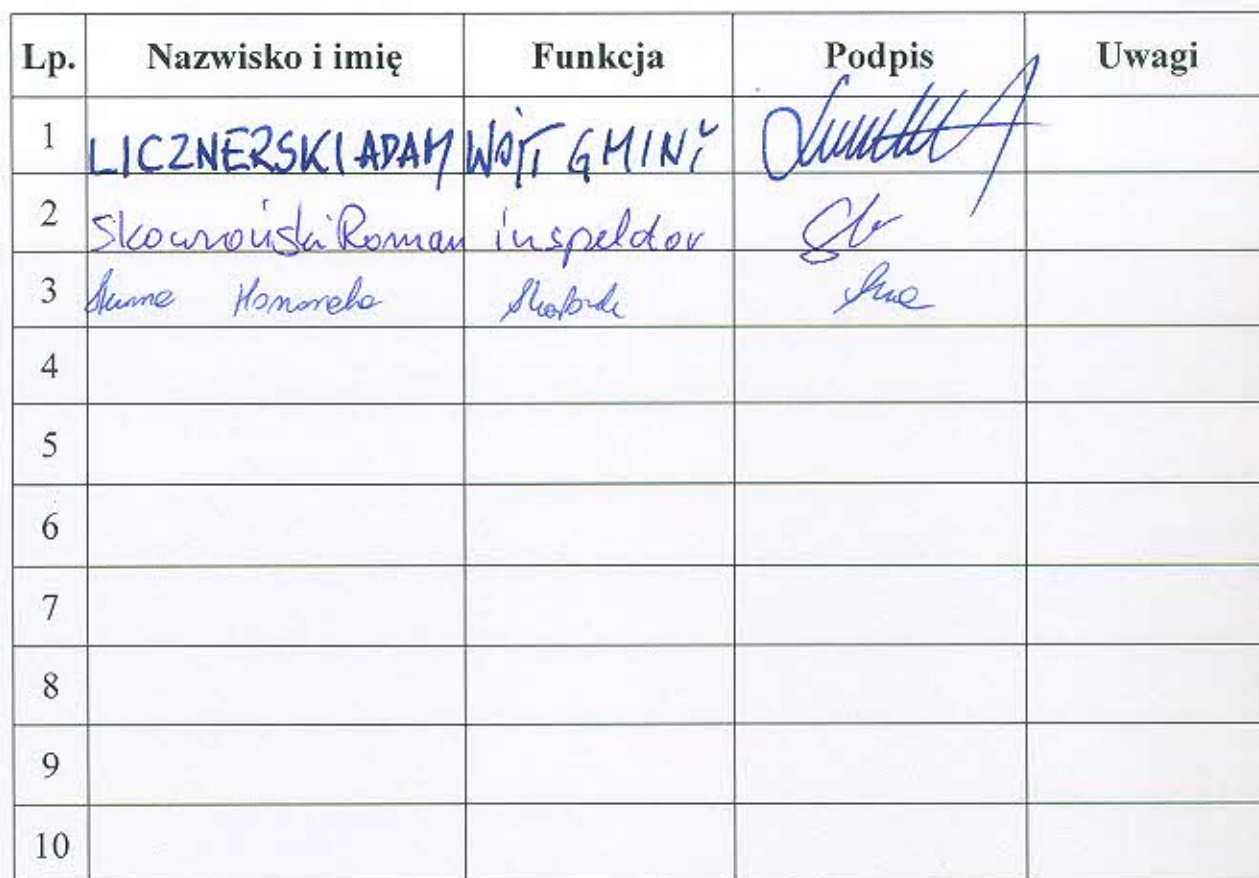 Lp. Nazwisko i imię Funkcja Podpis Uwagi
1 LICZNERSKI ADAM WÓJT GMINY
2 Skowroński Roman inspektor
3 Honorata
4
5
6
7
8
9
10